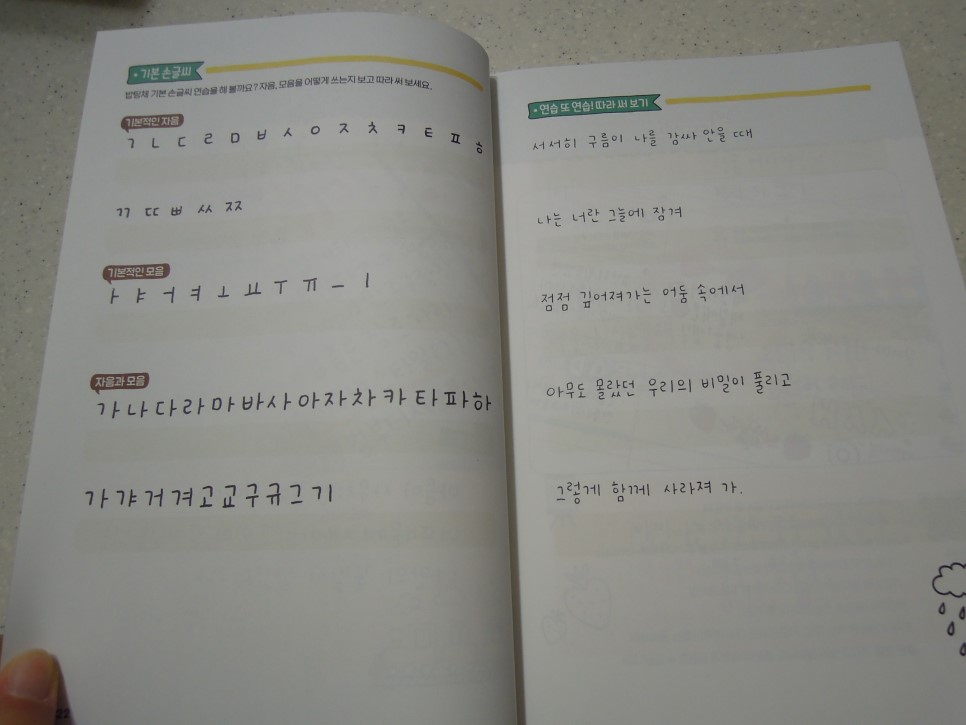 기본 손글씨
밤팅체 기본 손글씨 연습을 해 볼까요? 자음, 모음을 어떻게 쓰는지 보고 따라 써 보세요.
기본적인 자음
ㄱ ㄴ ㄷ ㄹ ㅁ ㅂ ㅅ ㅇ ㅈ ㅊ ㅋ ㅌ ㅍ ㅎ
ㄲ ㄸ ㅃ ㅆ ㅉ
기본적인 모음
ㅏ ㅑ ㅓ ㅕ ㅗ ㅛ ㅜ ㅠ ㅡ ㅣ
자음과 모음
가 나 다 라 마 바 사 아 자 차 카 타 파 하
가 갸 거 겨 고 교 구 규 그 기
22
연습 또 연습! 따라 써 보기
서서히 구름이 나를 감싸 안을 때
나는 너란 그늘에 잠겨
점점 깊어져가는 어둠 속에서
아무도 몰랐던 우리의 비밀이 풀리고
그렇게 함께 사라져 가.